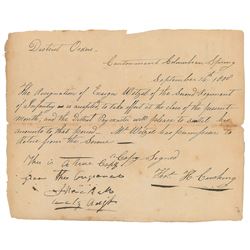 District Orders
Cantonment Columbian Spring
September 14th 1808
The Resignation of Ensign of the Second Regiment
of Infantry is accepted, to take effect at the close of the present
month, and the District Paymaster will please to settle his
accounts to that period. Mr has permission to
retire from the Service —
This is a true Copy Copy Signed
from the original Thos H. Cushing